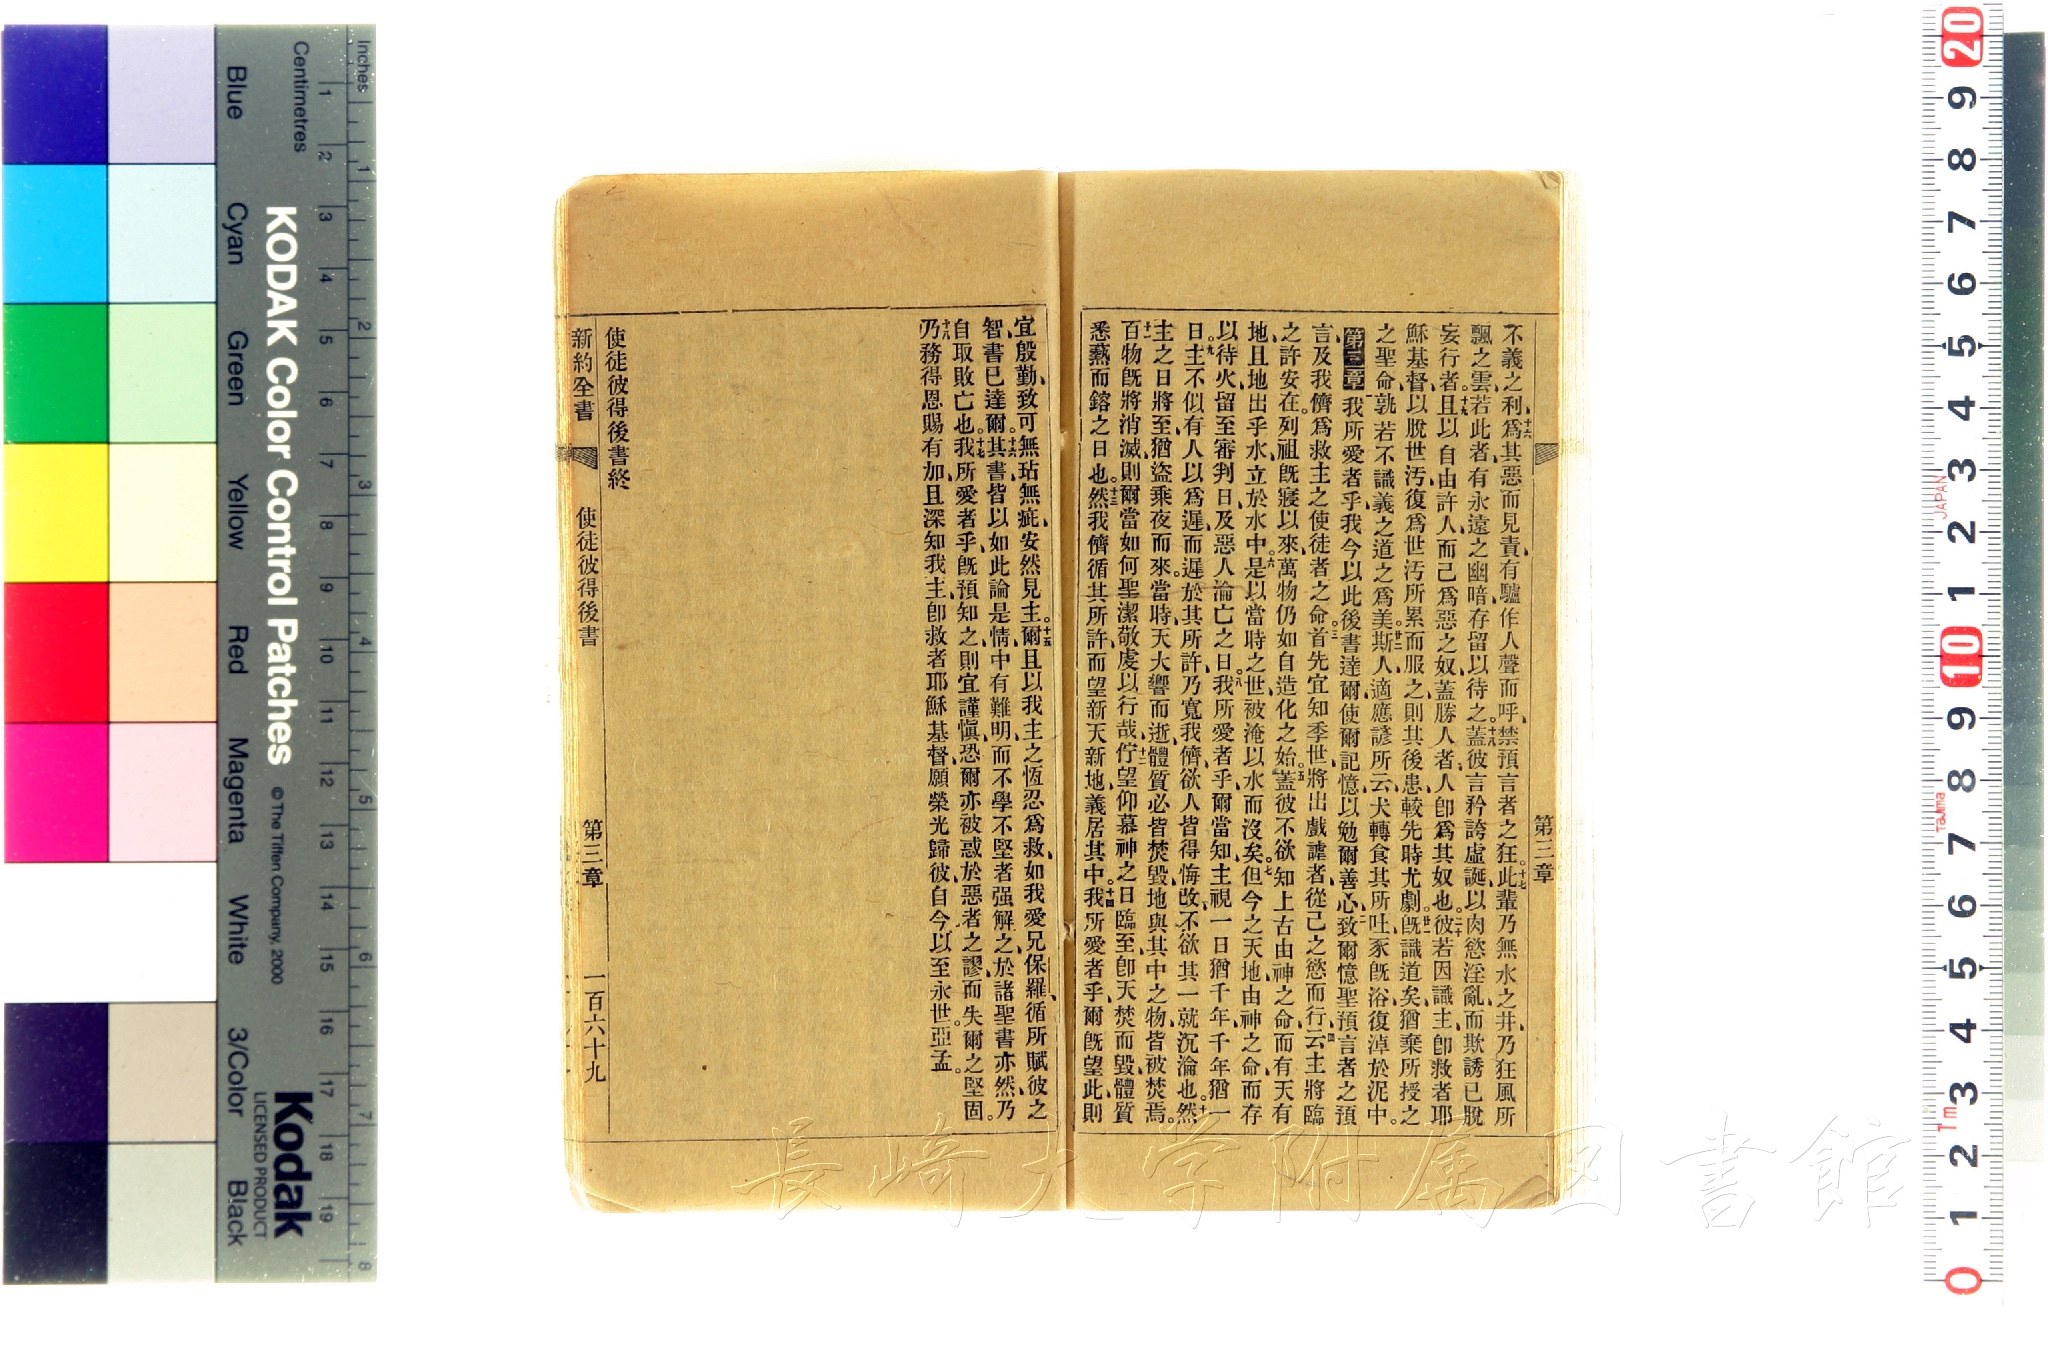 第三章
不義之利、十六爲其惡而見責、有驢作人聲而呼、禁預言者之狂。十七此輩乃無水之井、乃狂風所
飄之雲、若此者、有永遠之幽暗存留以待之。十八蓋彼言矜誇虛誕、以肉慾淫亂、而欺誘已脫
妄行者。十九且以自由許人、而己爲惡之奴、蓋勝人者、人卽爲其奴也。二十彼若因識主、卽救者耶
穌基督、以脫世汚、復爲世汚所累而服之、則其後患較先時尤劇。旣識道矣、猶棄所授之
之聖命、孰若不識義之道之爲美。斯人適應諺所云、犬轉食其所吐、豕旣浴、復淖於泥中。
第三章 一我所愛者乎、我今以此後書達爾、使爾記憶、以勉爾善心、二致爾憶聖預言者之預
言、及我儕爲救主之使徒者之命。三首先宜知季世、將出戲謔者、從己之慾而行、四云、主將臨
之許安在、列祖旣寢以來、萬物仍如自造化之始。五蓋彼不欲知上古由神之命而有天有
地、且地出乎水、立於水中。六是以當時之世、被淹以水而沒矣。七但今之天地、由神之命而存
以待火、留至審判日、及惡人淪亡之日。八我所愛者乎、爾當知主視一日猶千年、千年猶一
日。九主不似有人以爲遲而遲於其所許、乃寬我儕、欲人皆得悔改、不欲其一就沉淪也。十然
主之日將至、猶盜乘夜而來、當時、天大響而逝、體質必皆焚毀、地與其中之物、皆被焚焉。
十一百物旣將消滅、則爾當如何聖潔敬虔以行哉、十二佇望仰慕神之日臨至、卽天焚而毀、體質
悉爇而鎔之日也。十三然我儕循其所許、而望新天新地、義居其中。十四我所愛者乎、爾旣望此、則
宜殷勤、致可無玷無疵、安然見主。十五爾且以我主之恆忍爲救、如我愛兄保羅、循所賦彼之
智、書已達爾。十六其書皆以如此論是情、中有難明、而不學不堅者强解之、於諸聖書亦然、乃
自取敗亡也。十七我所愛者乎、旣預知之、則宜謹愼、恐爾亦被惑於惡者之謬、而失爾之堅固。
十八乃務得恩賜有加、且深知我主、卽救者耶穌基督、願榮光歸彼、自今以至永世。亞孟。
使徒彼得後書終
新約全書 使徒彼得後書 第三章 一百六十九
KODAK Color Control Patches
© The Tiffen Company, 2000
Kodak
LICENSED PRODUCT
Inches 1 2 3 4 5 6 7 8
Centimetres 1 2 3 4 5 6 7 8 9 10 11 12 13 14 15 16 17 18 19
Blue Cyan Green Yellow Red Magenta White 3/Color Black
20 9 8 7 6 5 4 3 2 1 10 9 8 7 6 5 4 3 2 1 0
JAPAN
Tajima
Tm
長崎大学附属図書館